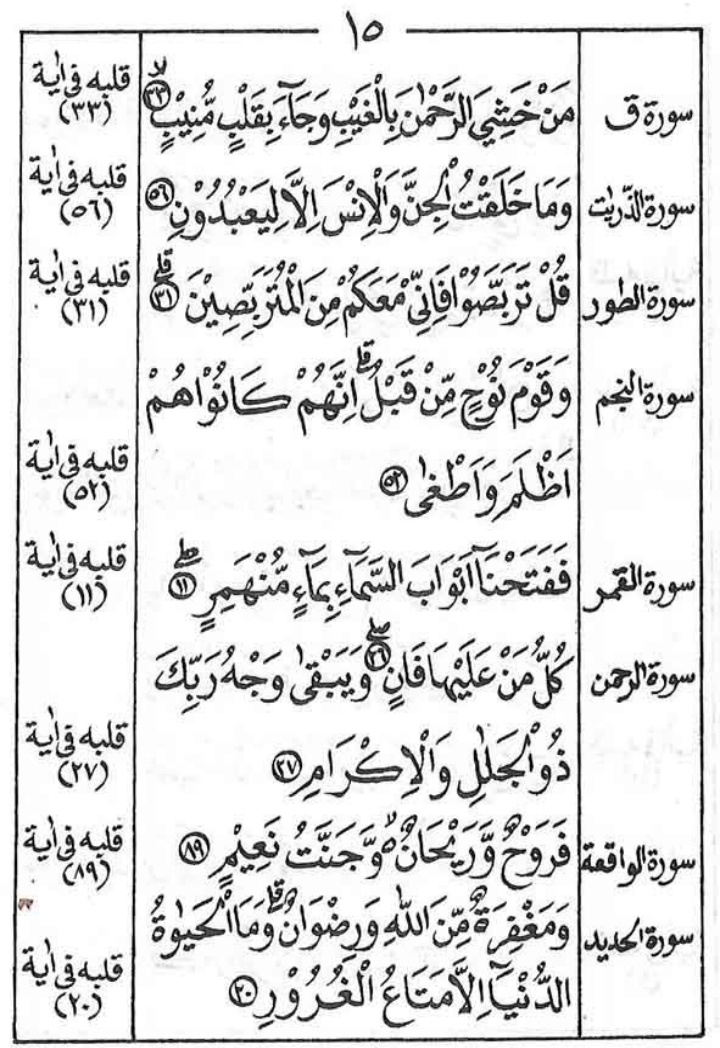 ١٥
سورة ق مَنْ خَشِيَ الرَّحْمٰنَ بِالْغَيْبِ وَجَآءَ بِقَلْبٍ مُّنِيْبٍ ﴿٣٣﴾ۙ قلبه فى اٰية (٣٣)
سورة الذّريت وَمَا خَلَقْتُ الْجِنَّ وَالْاِنْسَ اِلَّا لِيَعْبُدُوْنِ ﴿٥٦﴾ قلبه فى اٰية (٥٦)
سورة الطور قُلْ تَرَبَّصُوْا فَاِنِّيْ مَعَكُمْ مِنَ الْمُتَرَبِّصِيْنَ ﴿٣١﴾ۗ قلبه فى اٰية (٣١)
سورة النجم وَقَوْمَ نُوْحٍ مِّنْ قَبْلُ ۗ اِنَّهُمْ كَانُوْا هُمْ
اَظْلَمَ وَاَطْغٰى ﴿٥٢﴾ قلبه فى اٰية (٥٢)
سورة القمر فَفَتَحْنَآ اَبْوَابَ السَّمَآءِ بِمَآءٍ مُّنْهَمِرٍ ﴿١١﴾ۖ قلبه فى اٰية (١١)
سورة الرحمن كُلُّ مَنْ عَلَيْهَا فَانٍ ﴿٢٦﴾ۖ وَّيَبْقٰى وَجْهُ رَبِّكَ
ذُو الْجَلٰلِ وَالْاِكْرَامِ ﴿٢٧﴾ قلبه فى اٰية (٢٧)
سورة الواقعة فَرَوْحٌ وَّرَيْحَانٌ ەۙ وَّجَنَّتُ نَعِيْمٍ ﴿٨٩﴾ قلبه فى اٰية (٨٩)
سورة الحديد وَمَغْفِرَةٌ مِّنَ اللّٰهِ وَرِضْوَانٌ ۗ وَمَا الْحَيٰوةُ
الدُّنْيَآ اِلَّا مَتَاعُ الْغُرُوْرِ ﴿٢٠﴾ قلبه فى اٰية (٢٠)